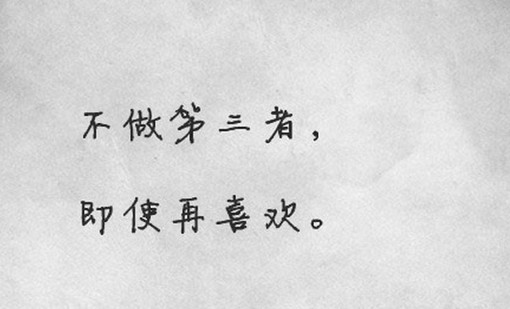 不做第三者，
即使再喜欢。